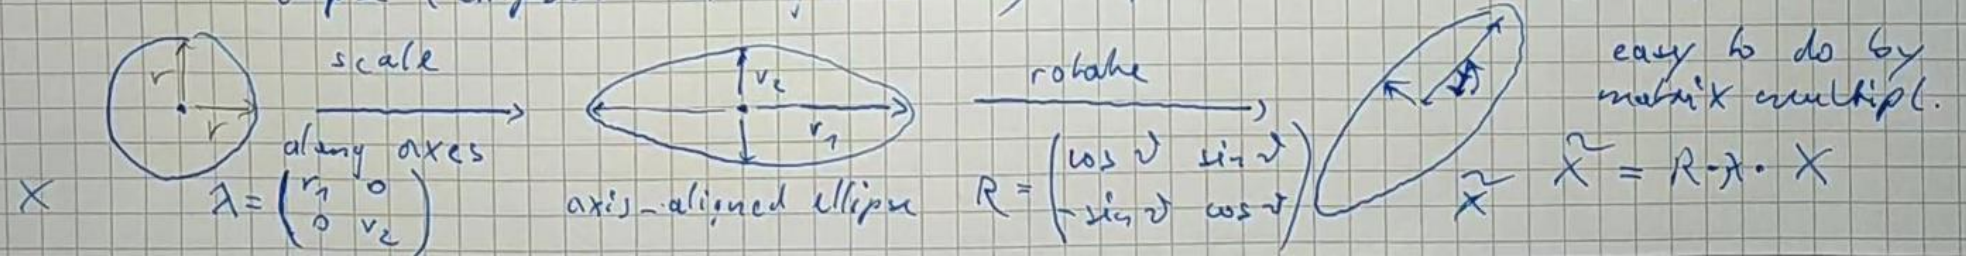 r
r
X
scale
along axes
λ = (r₁ 0
0 r₂)
r₂
r₁
axis-aligned ellipse
rotate
R = (cos ϑ sin ϑ
-sin ϑ cos ϑ)
X̃
easy to do by
matrix multipl.
X̃ = R·λ·X